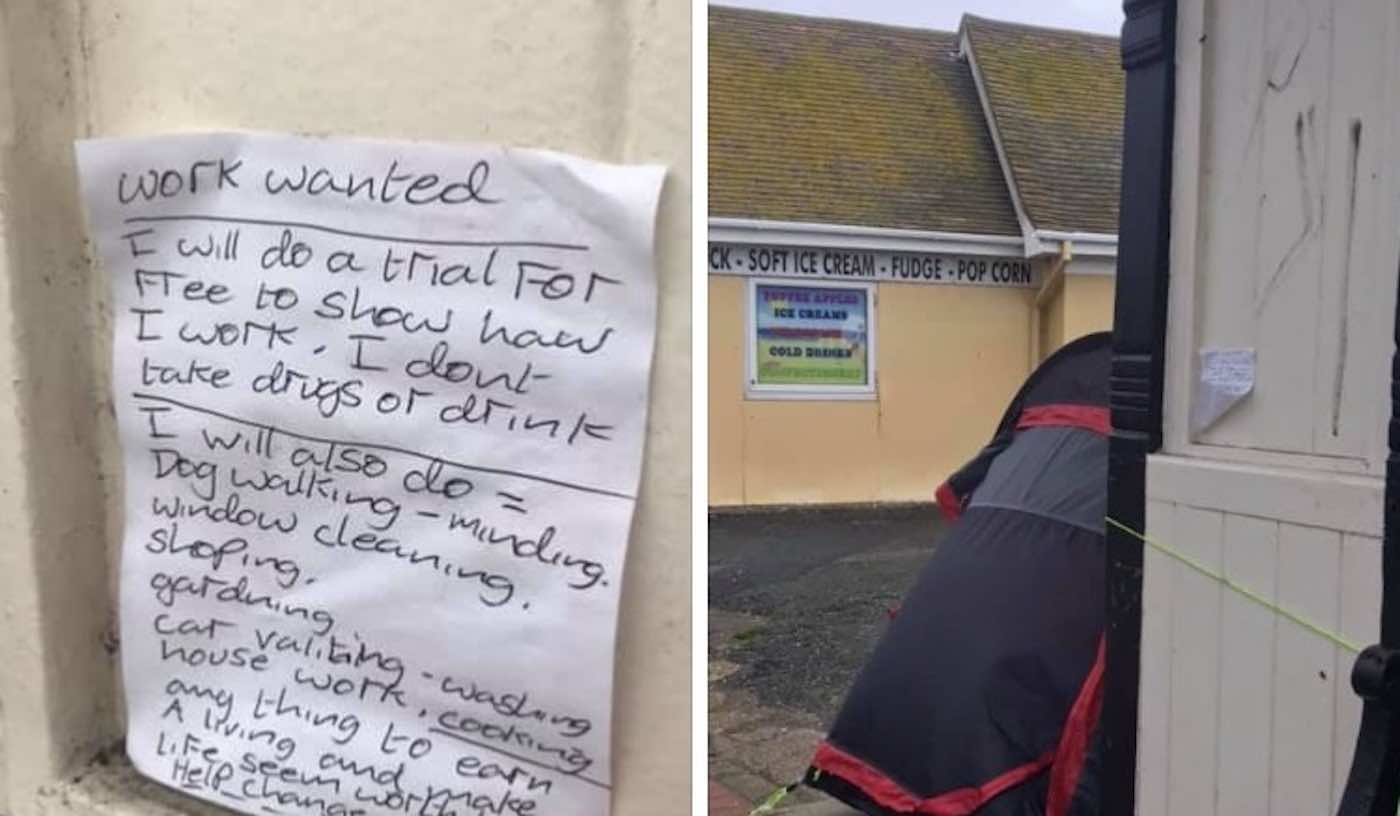 work wanted
I will do a trial For
Free to show haw
I work. I dont
take drugs or drink
I will also do =
Dog walking - minding.
window cleaning.
shoping.
gardning
car valiting - washing
house work, cooking
any thing to earn
A living and make
life seem worth
Help change
CK - SOFT ICE CREAM - FUDGE - POP CORN
TOFFEE APPLES
ICE CREAMS
COLD DRINKS